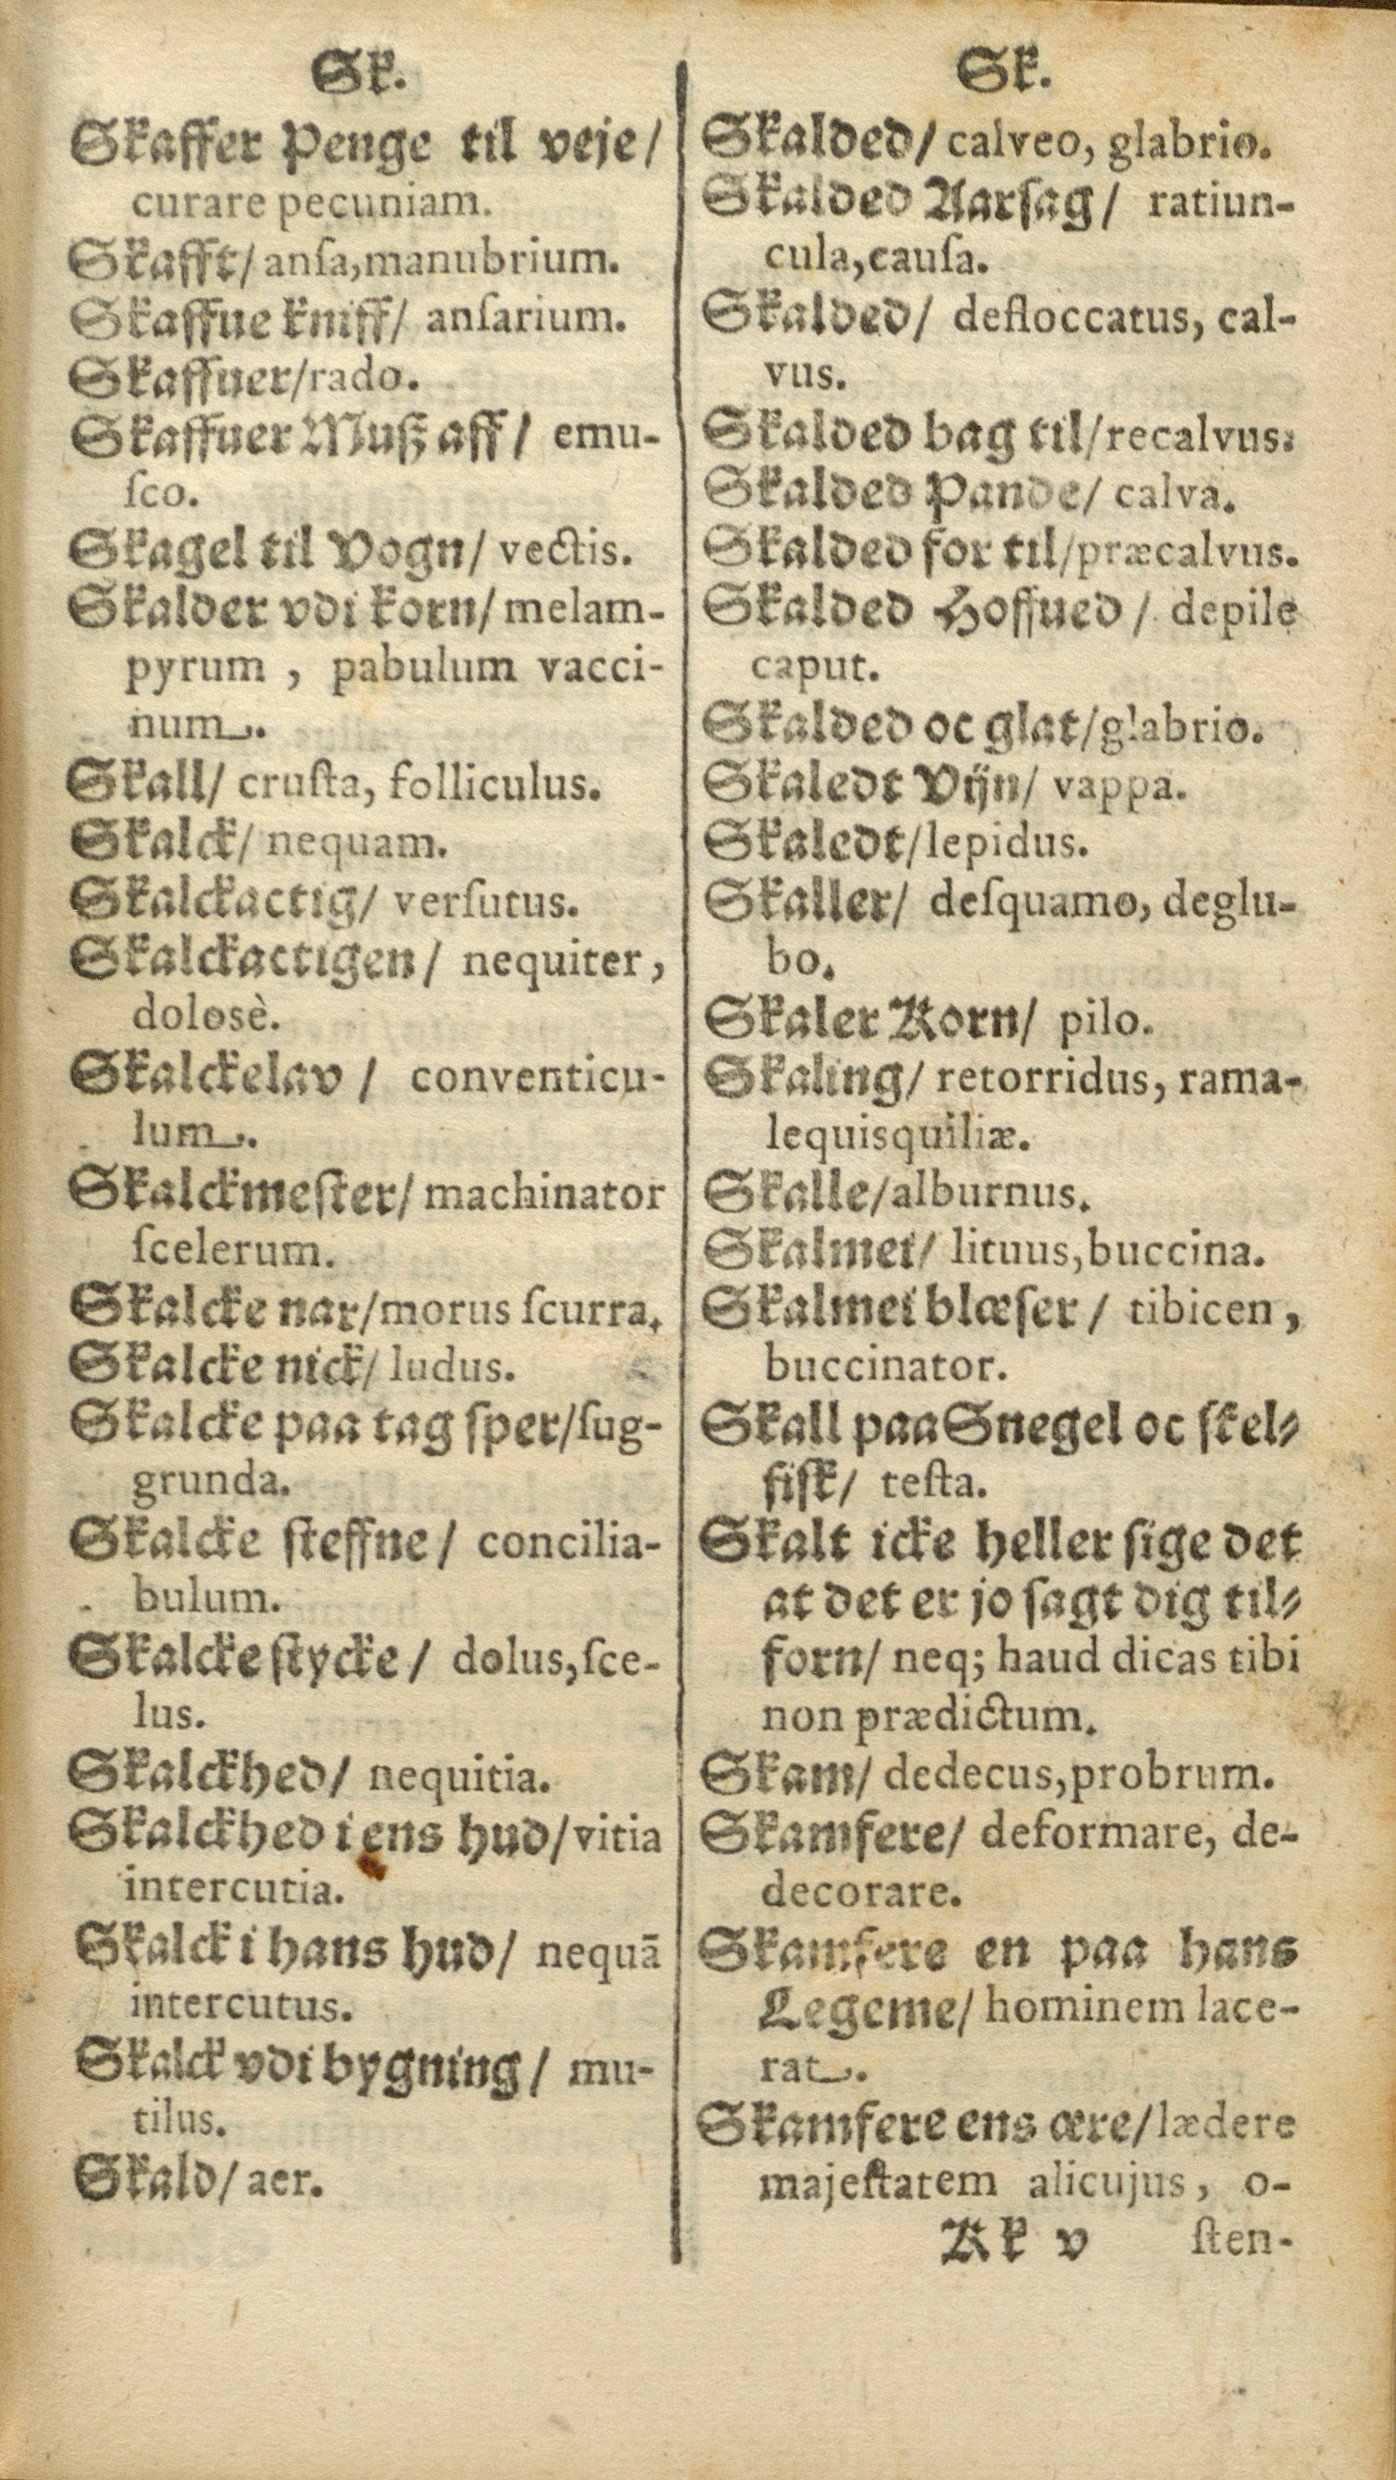 Sk.
Skaffer Penge til veje/
curare pecuniam.
Skafft/ anſa,manubrium.
Skaffue kniff/ anſarium.
Skaffuer/rado.
Skaffuer Muſz aff/ emu-
ſco.
Skagel til Vogn/ vectis.
Skalder vdi korn/ melam-
pyrum , pabulum vacci-
num.
Skall/ cruſta, folliculus.
Skalck/ nequam.
Skalckactig/ verſutus.
Skalckactigen/ nequiter,
dolosè.
Skalckelav / conventicu-
lum.
Skalckmeſter/ machinator
ſcelerum.
Skalcke nar/morus ſcurra.
Skalcke nick/ ludus.
Skalcke paa tag ſper/ſug-
grunda.
Skalcke ſteffne/ concilia-
bulum.
Skalcke ſtycke/ dolus,ſce-
lus.
Skalckhed/ nequitia.
Skalckhed i ens hud/vitia
intercutia.
Skalck i hans hud/ nequā
intercutus.
Skalck vdi bygning/ mu-
tilus.
Skald/ aer.
Sk.
Skalded/ calveo, glabrio.
Skalded Aarſag/ ratiun-
cula,cauſa.
Skalded/ defloccatus, cal-
vus.
Skalded bag til/recalvus.
Skalded Pande/ calva.
Skalded for til/præcalvus.
Skalded Hoffued/ depile
caput.
Skalded oc glat/glabrio.
Skaledt Vijn/ vappa.
Skaledt/lepidus.
Skaller/ deſquamo, deglu-
bo.
Skaler Korn/ pilo.
Skaling/ retorridus, rama-
lequisquiliæ.
Skalle/alburnus.
Skalmei/ lituus,buccina.
Skalmei blæſer/ tibicen,
buccinator.
Skall paa Snegel oc ſkel-
fiſk/ teſta.
Skalt icke heller ſige det
at det er jo ſagt dig til-
forn/ neq; haud dicas tibi
non prædictum.
Skam/ dedecus,probrum.
Skamfere/ deformare, de-
decorare.
Skamfere en paa hans
Legeme/ hominem lace-
rat.
Skamfere ens ære/lædere
majeſtatem alicujus, o-
Kk v ſten-